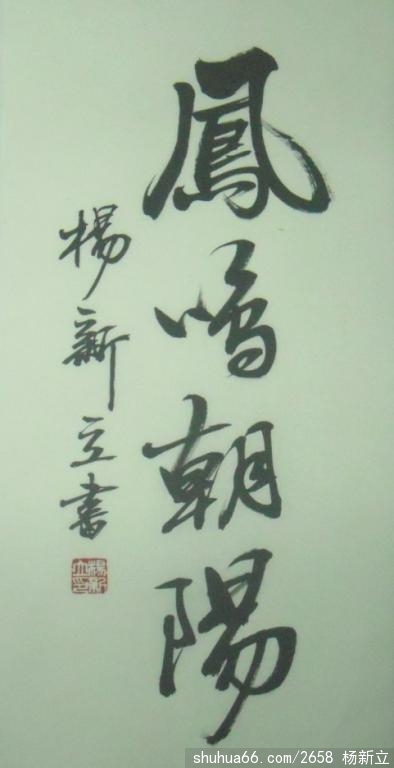 鳳鳴朝陽
楊新立書
楊新立印
shuhua66.com/2658 杨新立